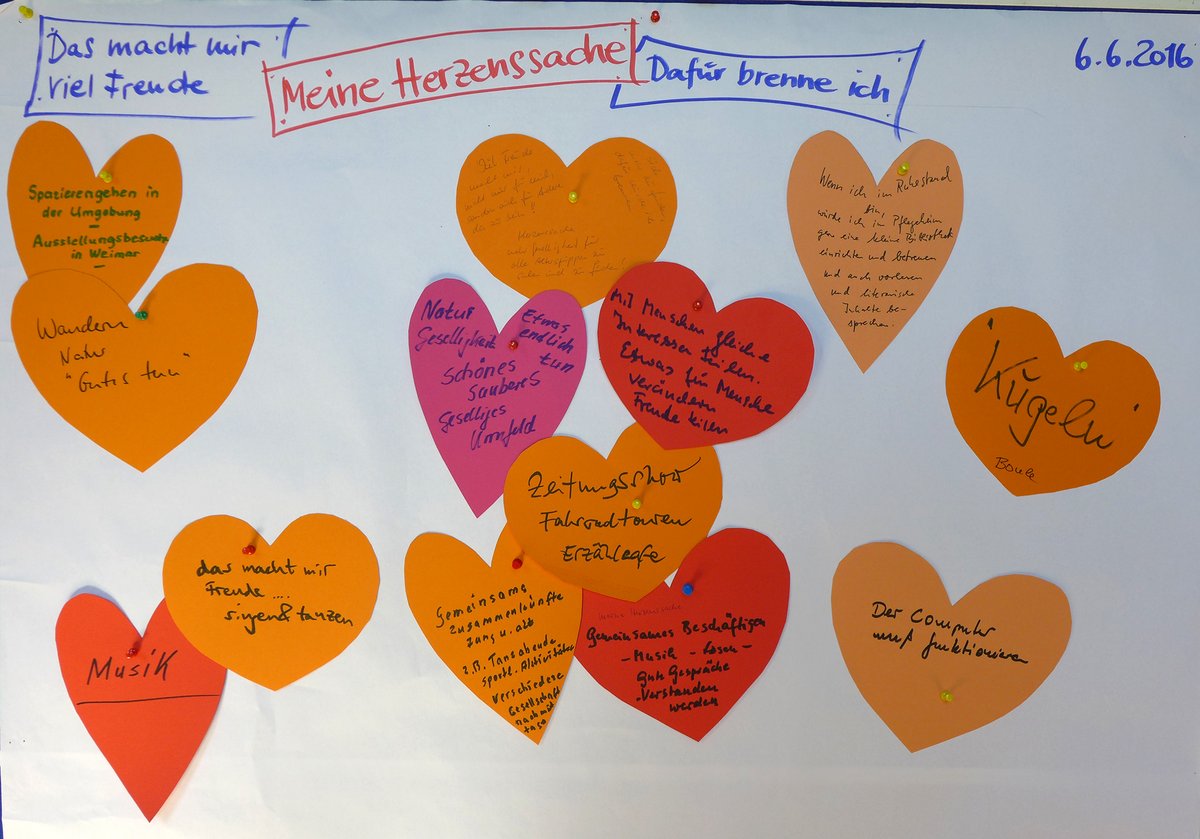 Das macht mir
viel Freude
Meine Herzenssache
Dafür brenne ich
6.6.2016
Spazierengehen in
der Umgebung
–
Ausstellungsbesuche
in Weimar
–
Wandern
Natur
"Gutes tun"
Herzenssache
Natur
Geselligkeit
Etwas
endlich
tun
Schönes
sauberes
geselliges
Umfeld
Mit Menschen gleiche
Interessen teilen.
Etwas für Mensche
verändern
Freude teilen
Wenn ich im Ruhestand
bin,
würde ich im Pflegeheim
gern eine kleine Bibliothek
einrichten und betreuen
und auch vorlesen
und literarische
Inhalte be-
sprechen.
Kugeln
Boule
Zeitungsshow
Fahrradtouren
Erzählcafe
das macht mir
Freude ....
singen & tanzen
Musik
Gemeinsame
Zusammenkünfte
Jung u. alt
z.B. Tanzabende
sportl. Aktivitäten
verschiedene
Gesellschaft
nachmit
tage
meine Herzenssache
Gemeinsames Beschäftigen
- Musik - Lesen -
gute Gespräche
- Verstanden
werden
Der Computer
muß funktionieren